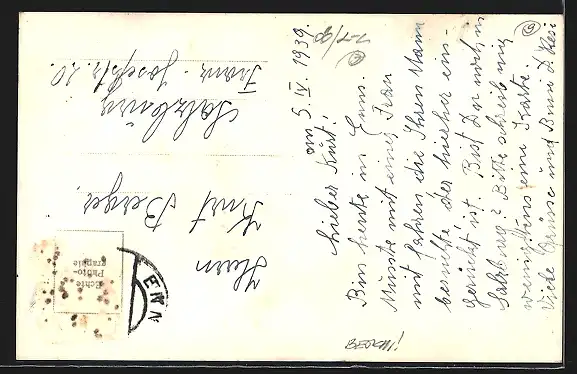 am 5. IV. 1939.
Lieber Kurt!
Bin heute in Enns
Musste mit einer Frau
mit fahren die Ihren Mann
besuchte der hieher ein-
gerückt ist. Bist Du noch in
Salzburg? Bitte schreib mir
wenigstens eine Karte.
Viele Grüsse und Bussi D. Resi
Herrn
Kurt Berger
Salzburg
Franz-Josefstr. 20.
Echte
Photo-
graphie
ENN